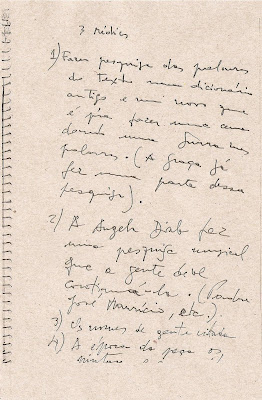 3 médios
1) Fazer pesquisa das palavras
do texto num dicionário
antigo e um novo que
é pra fazer uma
dando uma nas
palavras. (A graça já
fez uma parte dessa
pesquisa).
2) A Angela fez
uma pesquisa musical
que a gente deve
continuá-la. (
José Maurício, etc.).
3) Os nomes de gente citada
4) A época da peça os